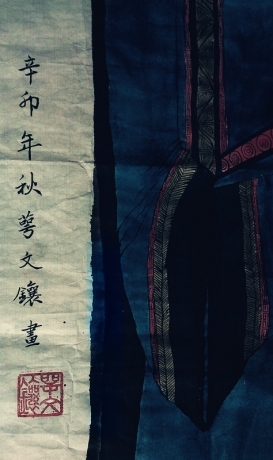 辛卯年秋萼文鑲畫